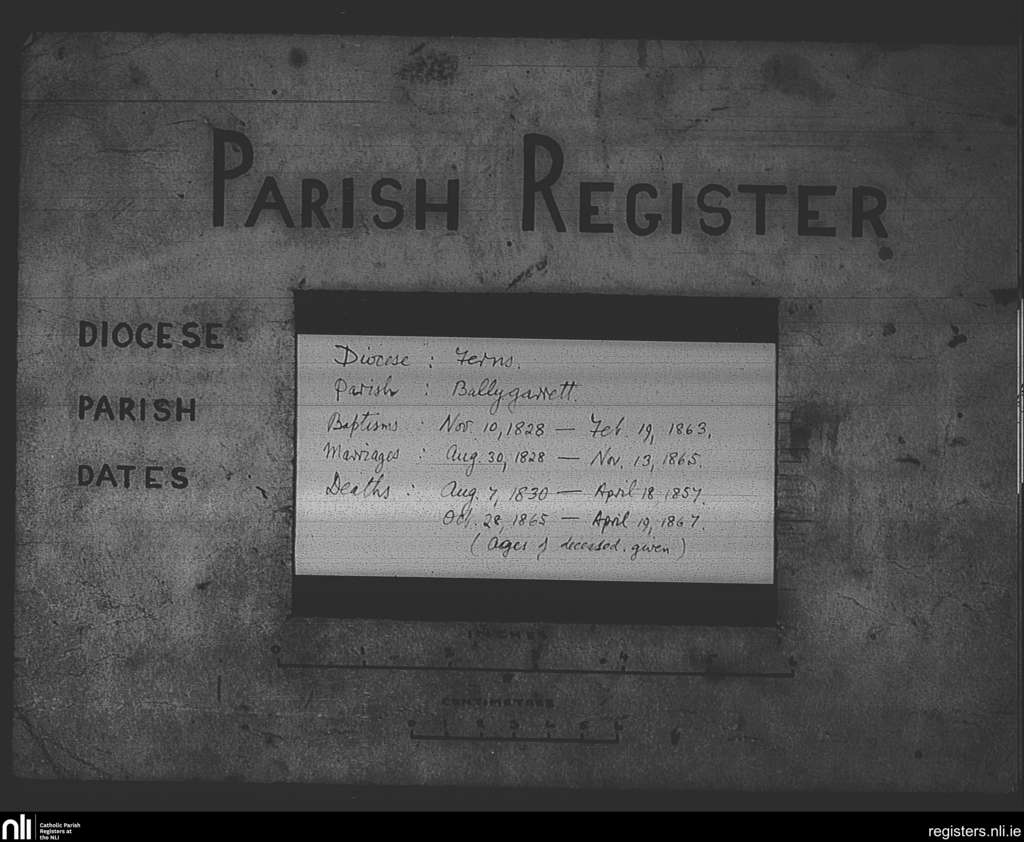 PARISH REGISTER
DIOCESE
PARISH
DATES
Diocese : Ferns.
Parish : Ballygarrett.
Baptisms : Nov. 10, 1828 — Feb. 19, 1863.
Marriages : Aug. 30, 1828 — Nov. 13, 1865.
Deaths : Aug. 7, 1830 — April 18 1857.
Oct. 28, 1865 — April 19, 1867.
(Ages of deceased given)
INCHES
CENTIMETRES
nli
Catholic Parish
Registers at
the NLI
registers.nli.ie